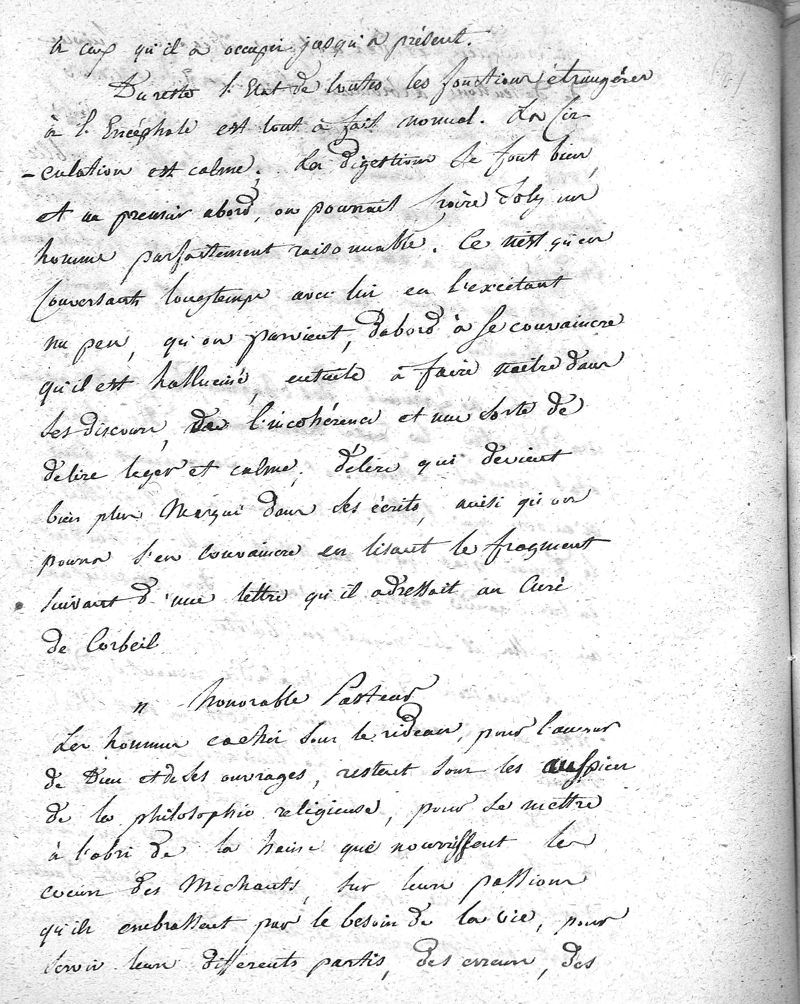 qu'il a occupé jusqu'à présent.
Du reste l'Etat de toutes les fonctions étrangères
à l'Encéphale est tout à fait normal. La Cir-
-culation est calme; La digestion se font bien,
et au premier abord, on pourrait croire Joly un
homme parfaitement raisonnable. Ce n'est qu'en
Conversant longtemps avec lui en l'excitant
un peu, qu'on parvient, d'abord à se convaincre
qu'il est halluciné, ensuite à faire naître dans
ses discours, de l'incohérence et une sorte de
délire léger et calme, délire qui devient
bien plus Marqué dans ses écrits, ainsi qu'on
pourra s'en Convaincre en lisant le fragment
suivant d'une lettre qu'il adressait au Curé
de Corbeil
" Honorable Pasteur
Les hommes cachés sous le rideau, pour l'amour
de Dieu et de ses ouvrages, restent sous les auspices
de la philosophie religieuse, pour se mettre
à l'abri de la haine que nourrissent les
coeurs des Méchants, sur leurs passions
qu'ils embrassent par le besoin de la vie, pour
servir leurs différents partis, des erreurs, des